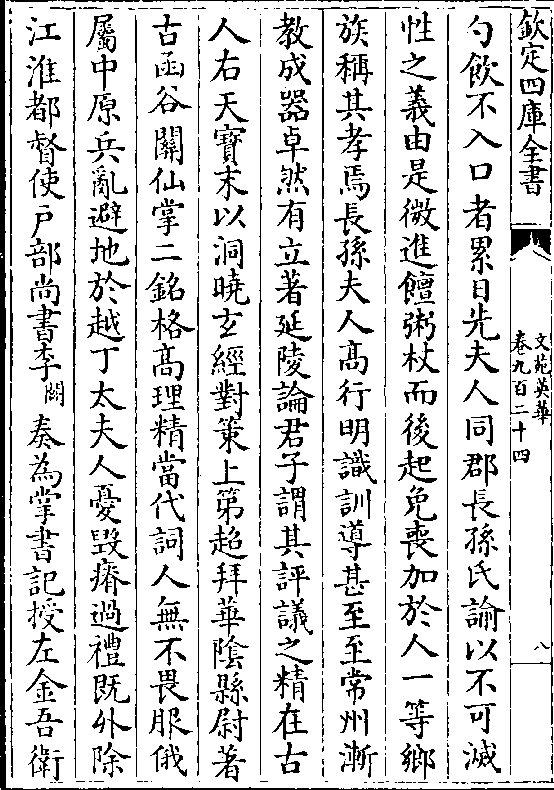 欽定四庫全書
文苑英華
卷九百二十四
八
勺飲不入口者累日先夫人同郡長孫氏諭以不可滅
性之義由是微進饘粥杖而後起免喪加於人一等鄉
族稱其孝焉長孫夫人高行明識訓導甚至至常州漸
教成器卓然有立著延陵論君子謂其評議之精在古
人右天寶末以洞曉玄經對策上第超拜華陰縣尉著
古函谷關仙掌二銘格高理精當代詞人無不畏服俄
屬中原兵亂避地於越丁太夫人憂毀瘠過禮既外除
江淮都督使戸部尚書李闕奏為掌書記授左金吾衛